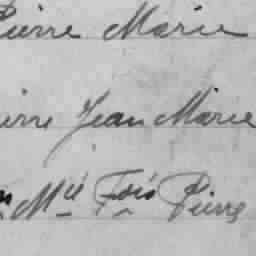 Pierre Marie
ierre Jean Marie
n Mie Fois Pierre